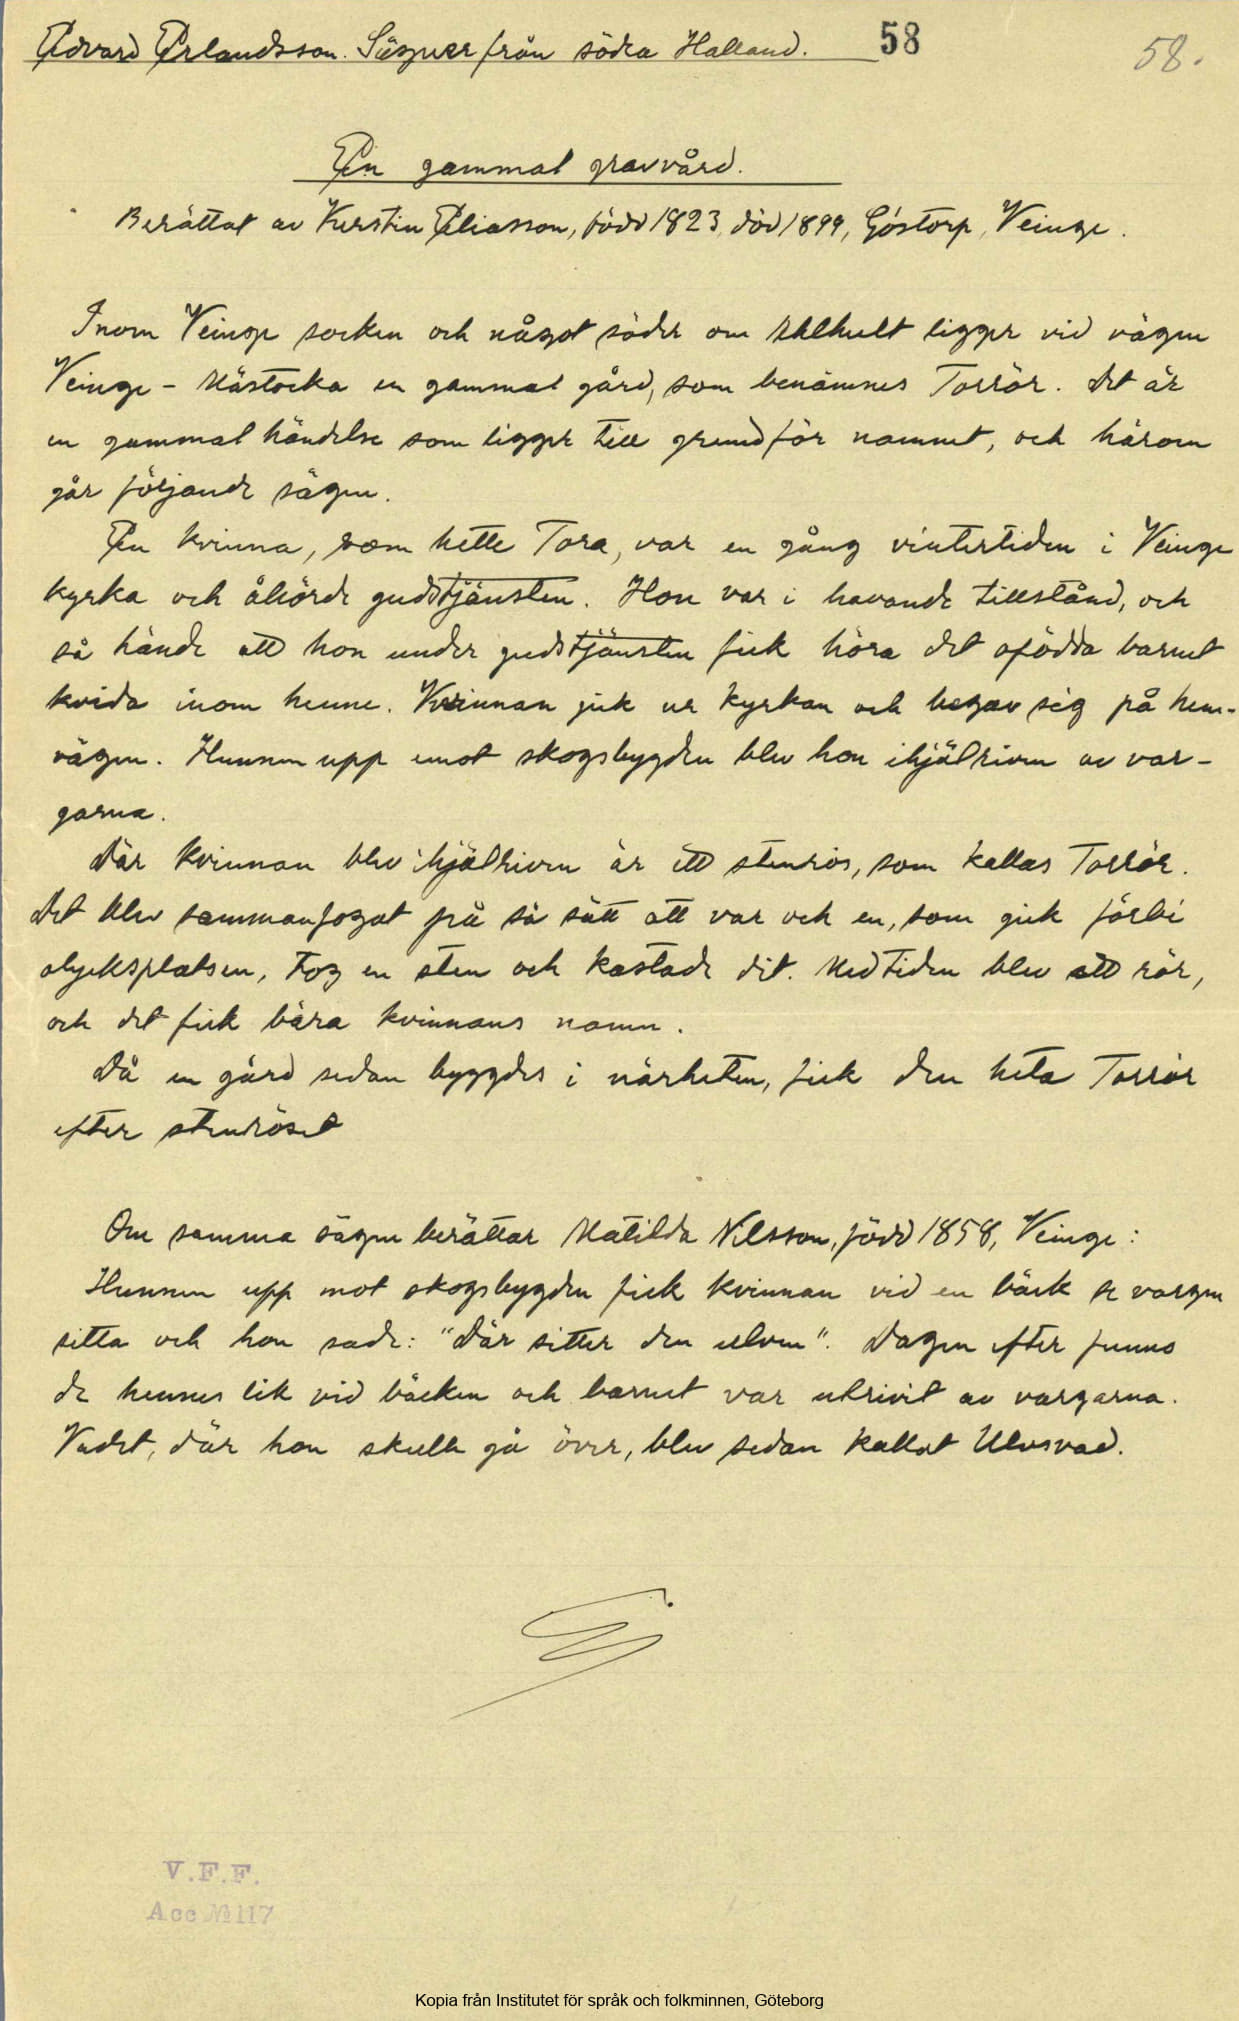 Edvard Erlandsson. Sägner från södra Halland. 58 58.
En gammal gravvård.
Berättat av Kerstin Eliasson, född 1823, död 1899, Göstorp, Veinge.
Inom Veinge socken och något söder om Ahlhult ligger vid vägen
Veinge - Mästocka en gammal gård, som benämnes Torrör. Det är
en gammal händelse som ligger till grund för namnet, och härom
går följande sägen.
En kvinna, som hette Tora, var en gång vintertiden i Veinge
kyrka och åhörde gudstjänsten. Hon var i havande tillstånd, och
så hände att hon under gudstjänsten fick höra det ofödda barnet
kvida inom henne. Kvinnan gick ur kyrkan och begav sig på hem-
vägen. Hunnen upp emot skogsbygden blev hon ihjälriven av var-
garna.
Där kvinnan blev ihjälriven är ett stenrös, som kallas Torrör.
Det blev sammanfogat på så sätt att var och en, som gick förbi
olycksplatsen, tog en sten och kastade dit. Med tiden blev ett rör,
och det fick bära kvinnans namn.
Då en gård sedan byggdes i närheten, fick den heta Torrör
efter stenröset
Om samma sägen berättar Matilda Nilsson, född 1858, Veinge:
Hunnen upp mot skogsbygden fick kvinnan vid en bäck se vargen
sitta och hon sade: "Där sitter den ulven". Dagen efter funno
de hennes lik vid bäcken och barnet var utrivit av vargarna.
Vadet, där hon skulle gå över, blev sedan kallat Ulvsvad.
V.F.F.
Acc № 117
Kopia från Institutet för språk och folkminnen, Göteborg